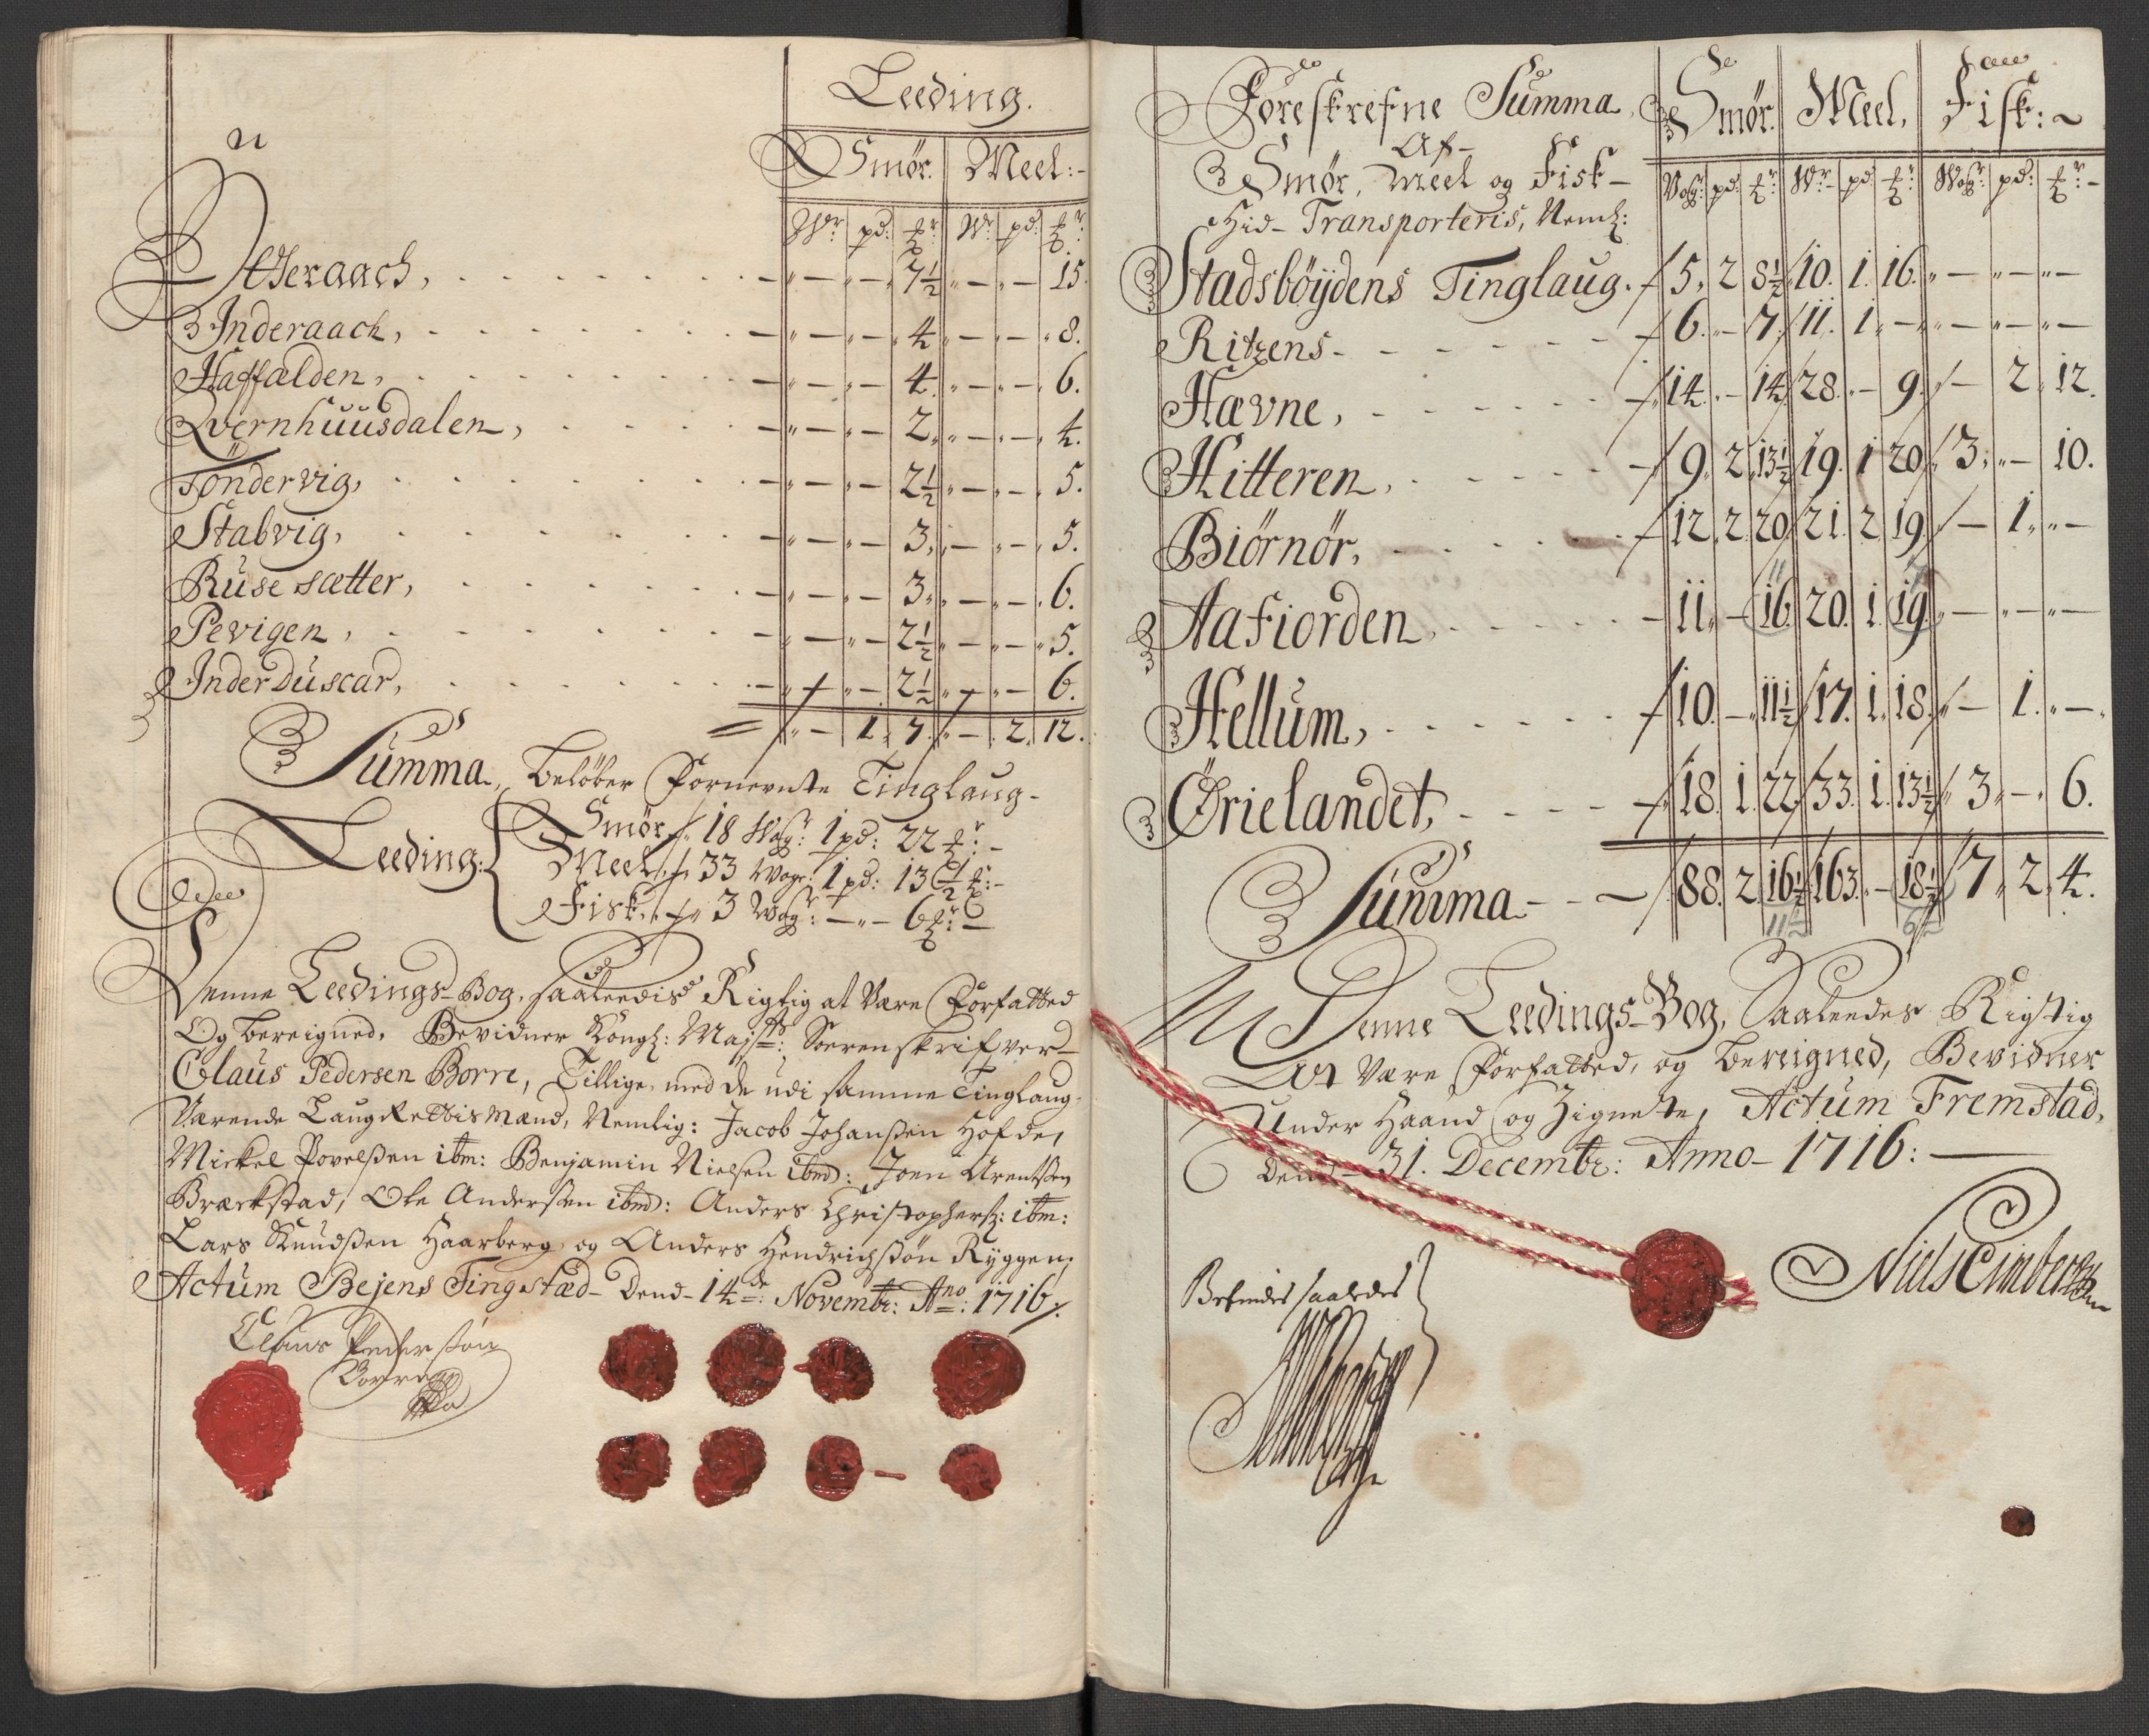 Leeding.
Smör. Meel:-
Wr pd: ℔r: Wr: pd: ℔r:
Ytteraach, " — " — " 7½ " — " — " 15.
Inderaach, " — " — " 4 " — " — " 8.
Haffælden, " — " — " 4. " — " — " 6.
Qvernhuusdalen, " — " — " 2. " — " — " 4.
Töndervig, " — " — " 2½ " — " — " 5.
Stabvig, " — " — " 3. " — " — " 5.
Ruse sætter, " — " — " 3. " — " — " 6.
Pevigen, " — " — " 2½ " — " — " 5.
Inderduscar, " — " — " 2½ " — " — " 6.
" — 1. 7. " — 2. 12.
Summa, beløber fornevnte Tinglaug-
Leeding: Smör 18 Wog: 1 pd: 22 ℔r: -
Meel 33 Wogr: 1 pd: 13½ ℔r:-
Fisk, 3 Wogr: — " — 6 ℔r: —
Denne Leedings-Bog, saaleedis Rigtig at være forfatted
Og bereigned, Bevidner Kongl: Majsts: Sorenskrifver
Claus Pedersen Borre, Tillige med de udi samme Tinglaug
Værende Laugrettismænd, Nemlig: Jacob Johanßen Hofde,
Mickel Povelßen ibm: Benjamin Nielsen ibmd: Joen Arentsen
Bræckstad, Ole Anderßen ibmd: Anders Christophersz: ibm:
Lars Knudßen Haarberg og Anders Hendrichßön Ryggen,
Actum Bejens Tingstæd Dend 14de: Novembr: Ano: 1716.
Claus Pederssön
Borre
Foreskrefne Summa
Af
Smör, Meel og Fisk
Hid Transporteris, Neml:
Smör. Meel. Fisk: ~
Wogr: pd: ℔r: Wr: pd: ℔r: Wogr: pd: ℔r: -
Stadsböÿdens Tinglaug. 5. 2 8½ 10. 1. 16. " — " — " —
Ritzens 6. " — 7. 11. 1. " — " — " — " —
Hævne, 14. " — 14. 28. " — 9. " — 2. 12.
Hitteren, 9. 2. 13½ 19. 1 20. 3. " — 10.
Biörnör, 12. 2. 20. 21. 2. 19. " — 1. " —
11 7
Aafiorden, 11. " — 16. 20. 1. 19. " — " — " —
Hellum, 10. — " 11½ 17. 1. 18. " — 1. " —
Örielandet, 18. 1. 22. 33. 1. 13½ 3. " — 6.
Summa 88. 2. 16½ 163. " — 18½ 7. 2. 4.
11½ 6½
Denne Leedings-Bog, Saaleedes Rigtig
At være forfatted, og bereigned, Bevidner
Under Haand og Zignete, Actum Fremstad,
Dend 31. Decembr: Anno 1716:
Niels Eimbertsen
Befindes saaledes